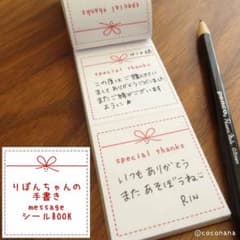 special thanks
special thanks
この度はご購入いただき
ましてありがとうございました
またご縁がございます
ように
special thanks
いつもありがとう
またあそぼうねこ
RIN
りぼんちゃんの
手書き
message
シールBOOK
@coconana